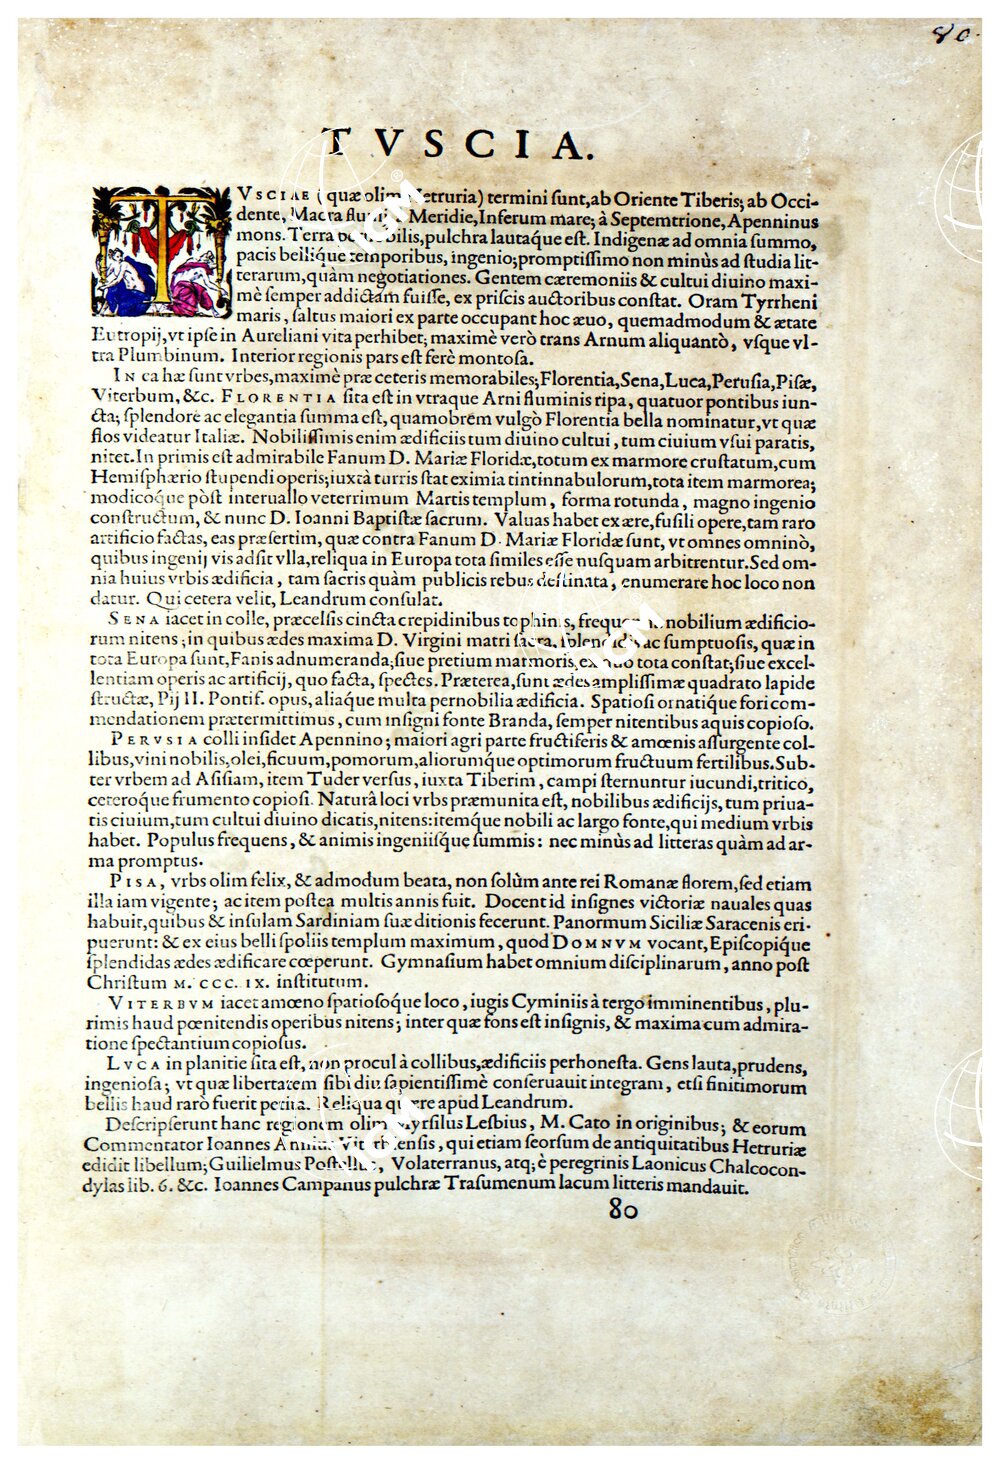 80.
TVSCIA.
TVSCIAE (quæ olim Hetruria) termini ſunt, ab Oriente Tiberis; ab Occi-
dente, Macra Meridie, Inferum mare; à Septemtrione, Apenninus
mons. Terra pulchra lautaq́ue eſt. Indigenæ ad omnia ſummo,
pacis belliq́ue temporibus, ingenio; promptiſſimo non minùs ad ſtudia lit-
terarum, quàm negotiationes. Gentem cæremoniis & cultui diuino maxi-
mè ſemper addictam fuiſſe, ex priſcis auctoribus conſtat. Oram Tyrrheni
maris, ſaltus maiori ex parte occupant hoc æuo, quemadmodum & ætate
Eutropij, vt ipſe in Aureliani vita perhibet; maximè verò trans Arnum aliquantò, vſque vl-
tra Plumbinum. Interior regionis pars eſt ferè montoſa.
IN ea hæ ſunt vrbes, maximè præ ceteris memorabiles; Florentia, Sena, Luca, Peruſia, Piſæ,
Viterbum, &c. FLORENTIA ſita eſt in vtraque Arni fluminis ripa, quatuor pontibus iun-
cta; ſplendore ac elegantia ſumma eſt, quamobrem vulgò Florentia bella nominatur, vt quæ
flos videatur Italiæ. Nobiliſſimis enim ædificiis tum diuino cultui, tum ciuium vſui paratis,
nitet. In primis eſt admirabile Fanum D. Mariæ Floridæ, totum ex marmore cruſtatum, cum
Hemiſphærio ſtupendi operis; iuxtà turris ſtat eximia tintinnabulorum, tota item marmorea;
modicoq́ue pòſt interuallo veterrimum Martis templum, forma rotunda, magno ingenio
conſtructum, & nunc D. Ioanni Baptiſtæ ſacrum. Valuas habet ex ære, fuſili opere, tam raro
artificio factas, eas præſertim, quæ contra Fanum D. Mariæ Floridæ ſunt, vt omnes omninò,
quibus ingenij vis adſit vlla, reliqua in Europa tota ſimiles eſſe nuſquam arbitrentur. Sed om-
nia huius vrbis ædificia, tam ſacris quàm publicis rebus deſtinata, enumerare hoc loco non
datur. Qui cetera velit, Leandrum conſulat.
SENA iacet in colle, præcelſis cincta crepidinibus tophinis, nobilium ædificio-
rum nitens; in quibus ædes maxima D. Virgini matri ſacra, ac ſumptuoſis, quæ in
tota Europa ſunt, Fanis adnumeranda; ſiue pretium marmoris, ex quo tota conſtat; ſiue excel-
lentiam operis ac artificij, quo facta, ſpectes. Præterea, ſunt ædes ampliſſimæ quadrato lapide
ſtructæ, Pij II. Pontif. opus, aliaq́ue multa pernobilia ædificia. Spatioſi ornatiq́ue fori com-
mendationem prætermittimus, cum inſigni fonte Branda, ſemper nitentibus aquis copioſo.
PERVSIA colli inſidet Apennino; maiori agri parte fructiferis & amœnis aſſurgente col-
libus, vini nobilis, olei, ficuum, pomorum, aliorumq́ue optimorum fructuum fertilibus. Sub-
ter vrbem ad Aſiſiam, item Tuder verſus, iuxta Tiberim, campi ſternuntur iucundi, tritico,
ceteroq́ue frumento copioſi. Naturâ loci vrbs præmunita eſt, nobilibus ædificijs, tum priua-
tis ciuium, tum cultui diuino dicatis, nitens: itemq́ue nobili ac largo fonte, qui medium vrbis
habet. Populus frequens, & animis ingeniiſq́ue ſummis: nec minùs ad litteras quàm ad ar-
ma promptus.
PISA, vrbs olim felix, & admodum beata, non ſolùm ante rei Romanæ florem, ſed etiam
illa iam vigente; ac item poſtea multis annis fuit. Docent id inſignes victoriæ nauales quas
habuit, quibus & inſulam Sardiniam ſuæ ditionis fecerunt. Panormum Siciliæ Saracenis eri-
puerunt: & ex eius belli ſpoliis templum maximum, quod DOMNVM vocant, Epiſcopiq́ue
ſplendidas ædes ædificare cœperunt. Gymnaſium habet omnium diſciplinarum, anno poſt
Chriſtum M. CCC. IX. inſtitutum.
VITERBVM iacet amœno ſpatioſoq́ue loco, iugis Cyminiis à tergo imminentibus, plu-
rimis haud pœnitendis operibus nitens; inter quæ fons eſt inſignis, & maxima cum admira-
tione ſpectantium copioſus.
LVCA in planitie ſita eſt, non procul à collibus, ædificiis perhoneſta. Gens lauta, prudens,
ingenioſa; vt quæ libertatem ſibi diu ſapientiſſimè conſeruauit integram, etſi finitimorum
bellis haud rarò fuerit petita. Reliqua quære apud Leandrum.
Deſcripſerunt hanc regionem olim Myrſilus Leſbius, M. Cato in originibus; & eorum
Commentator Ioannes Annius Viterbienſis, qui etiam ſeorſum de antiquitatibus Hetruriæ
edidit libellum; Guilielmus Poſtellus, Volaterranus, atq; è peregrinis Laonicus Chalcocon-
dylas lib. 6. &c. Ioannes Campanus pulchræ Traſumenum lacum litteris mandauit.
80